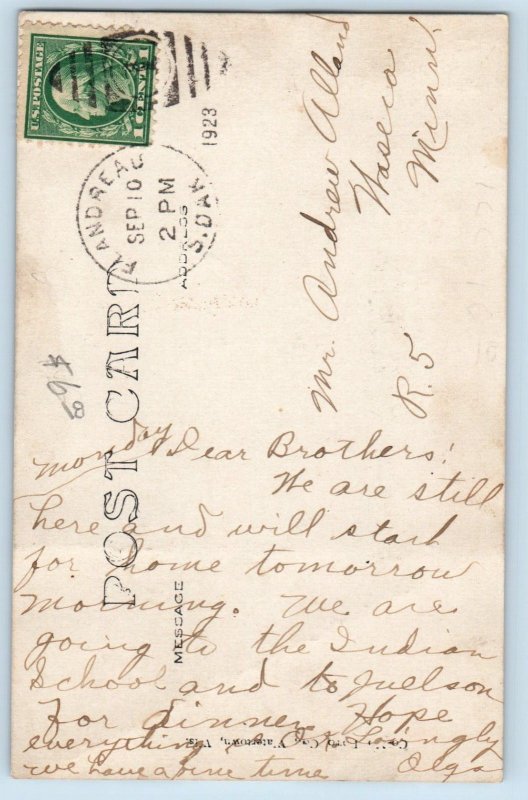 U.S. POSTAGE
1 CENT 1
FLANDREAU
SEP 10
2 PM
S. DAK.
1923
POST CARD
ADDRESS
MESSAGE
Mr. Andrew Alland
Waseca
Minn.
R. 5
69¢
Monday Dear Brothers:
We are still
here and will start
for home tomorrow
morning. We are
going to the Indian
School and to Juelson
For dinner. Hope
everything is O.K.
we have a fine time
Olga
Co. Watertown, Wis.